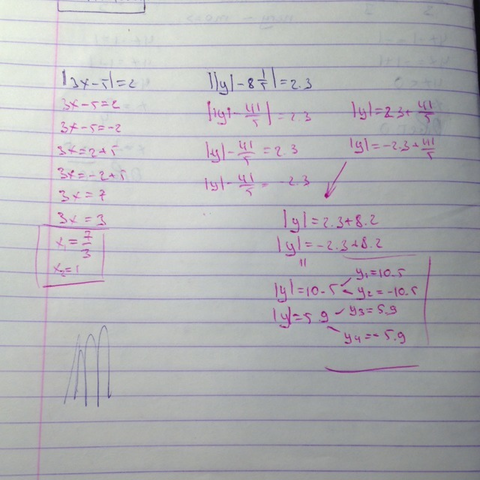 |3x-5|=2
3x-5=2
3x-5=-2
3x=2+5
3x=-2+5
3x=7
3x=3
x₁=7/3
x₂=1
||y|-8 1/5|=2.3
||y|-41/5|=2.3
|y|-41/5=2.3
|y|-41/5=-2.3
|y|=2.3+41/5
|y|=-2.3+41/5
|y|=2.3+8.2
|y|=-2.3+8.2
|y|=10.5 y₁=10.5
y₂=-10.5
|y|=5.9 y₃=5.9
y₄=-5.9